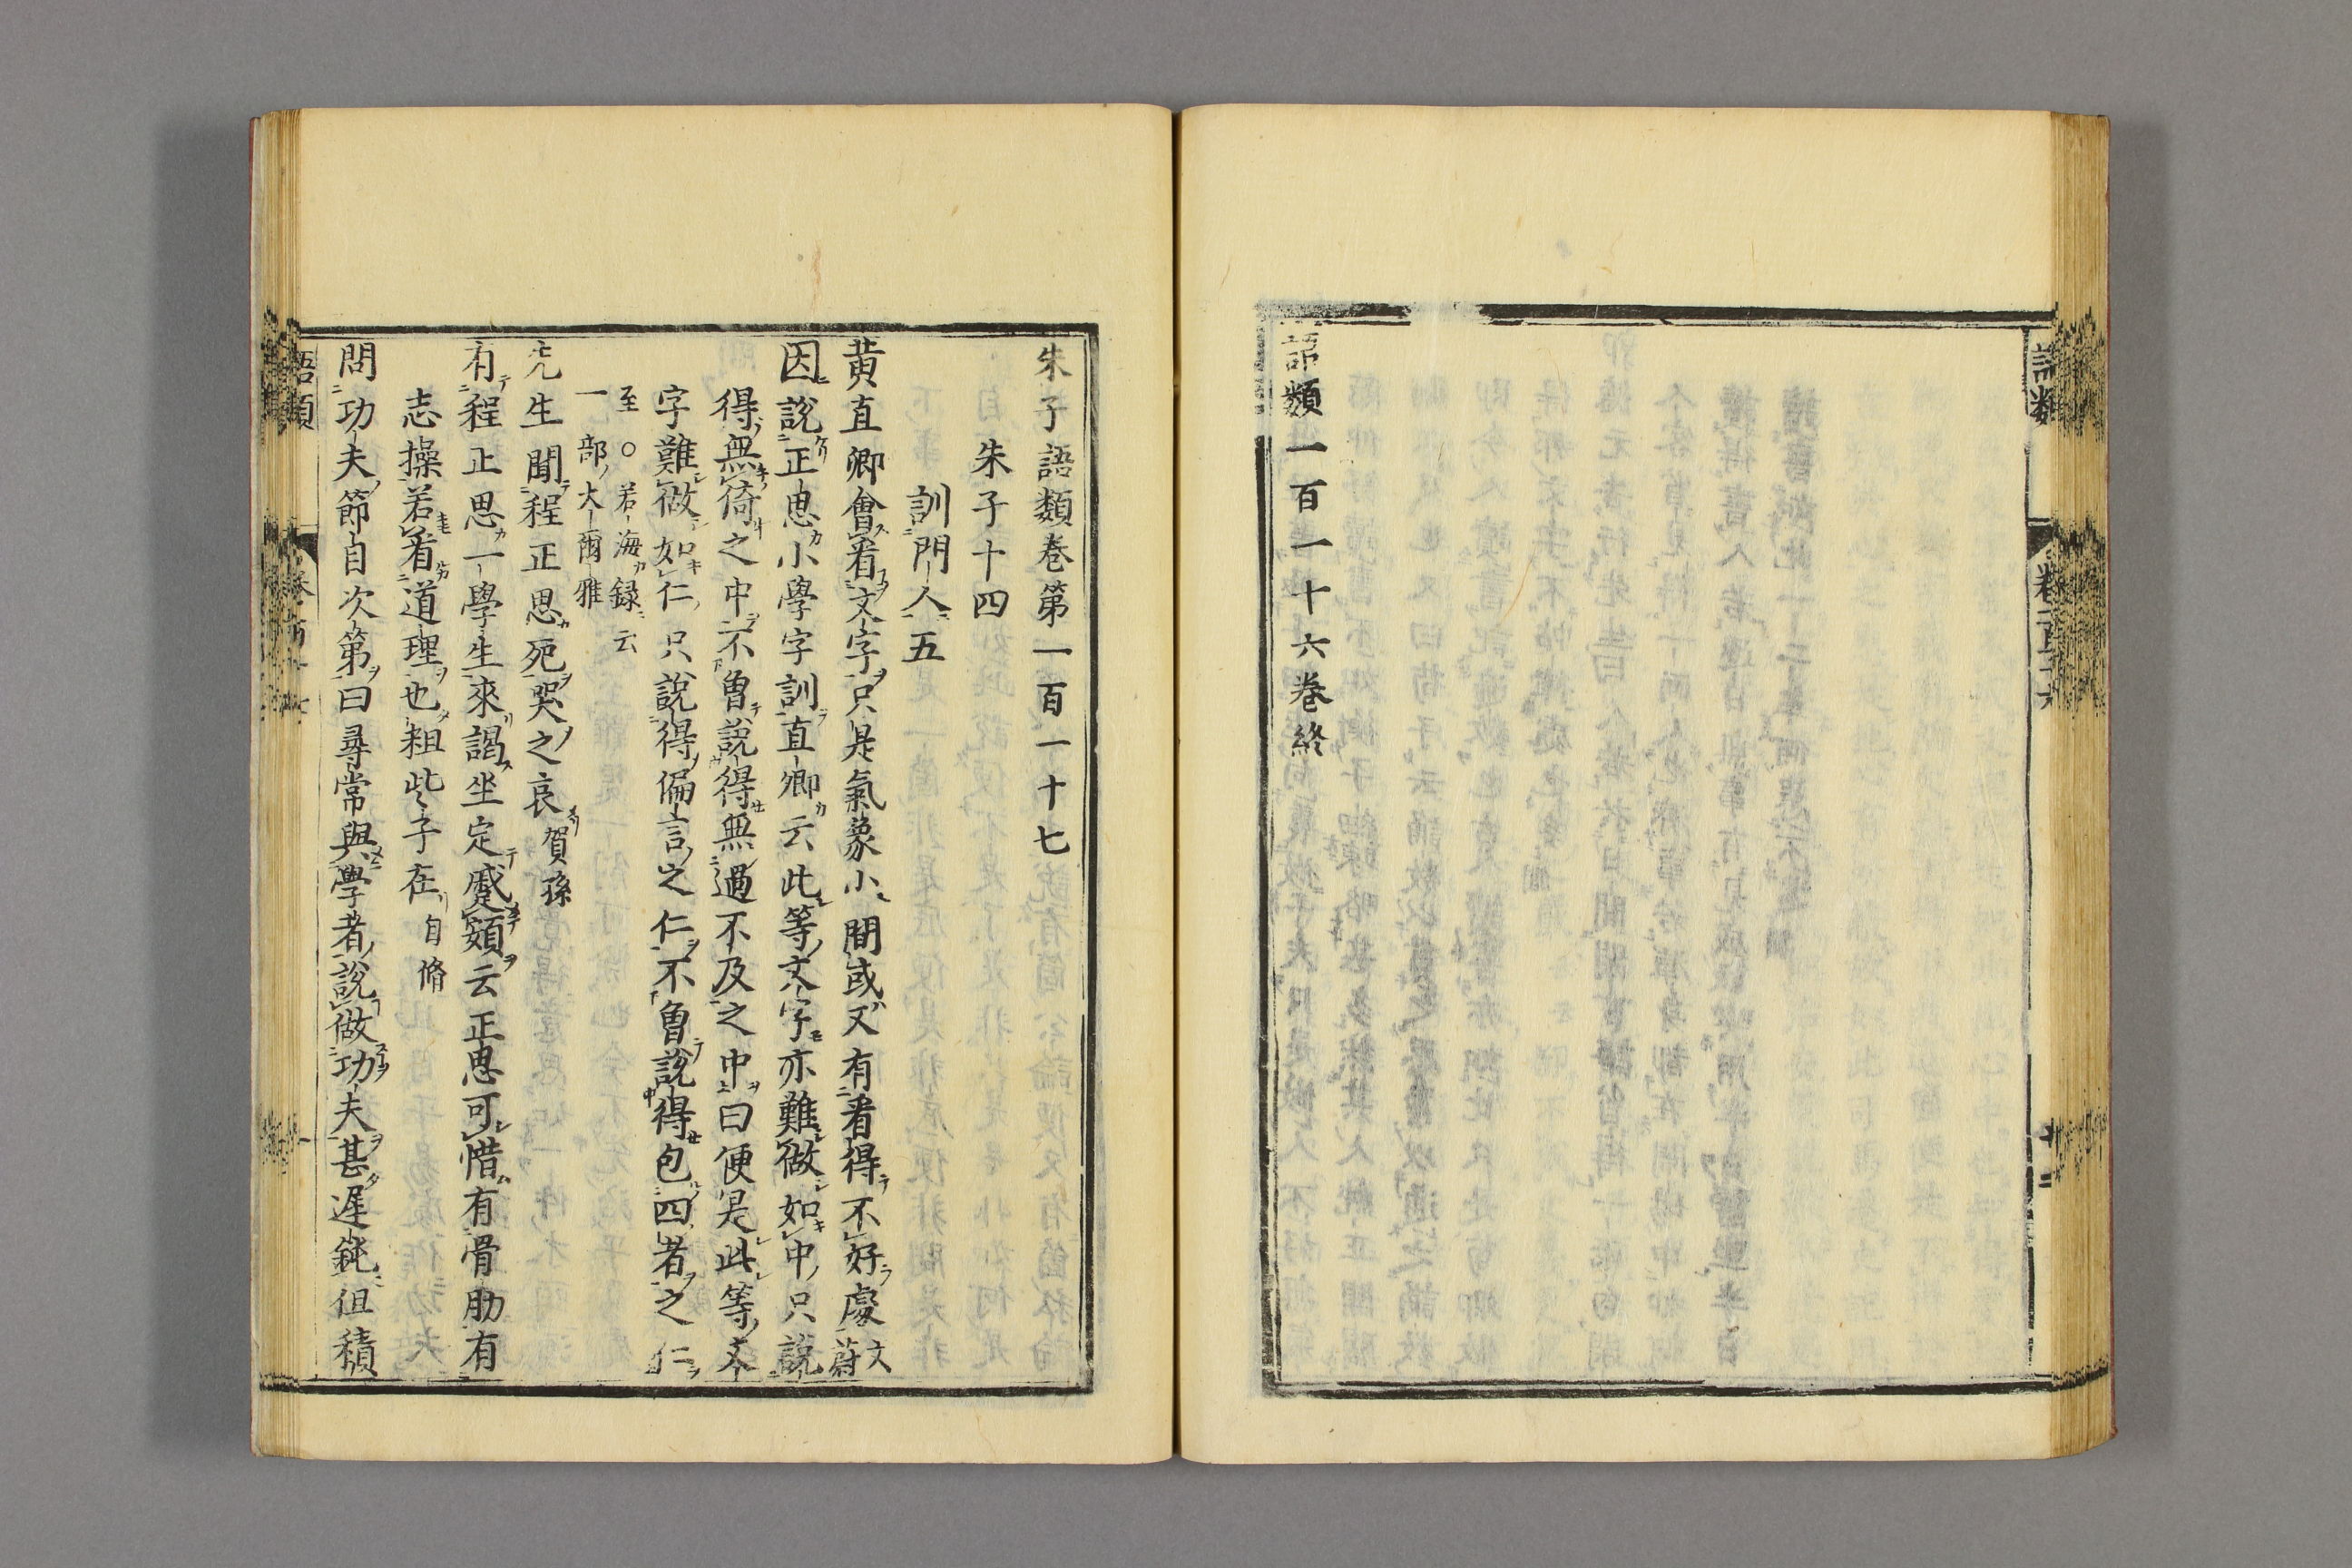 語類
卷一百十六
廿二
語類一百一十六卷終
朱子語類卷第一百一十七
朱子十四
訓門人五
黄直卿會看文字只是氣象小間或又有看得不好處文蔚
因說正思小學字訓直卿云此等文字亦難做如中只說
得無倚之中不曾說得無過不及之中曰便是此等文
字難做如仁只說得偏言之仁不曾說得包四者之仁
至○若海録云
一部大爾雅
先生聞程正思死哭之哀賀孫
有程正思一學生來謁坐定蹙額云正思可惜有骨肋有
志操若看道理也粗些子在自脩
問功夫節自次第曰尋常與學者說做功夫甚遲鈍但積
語類
卷一百十七
一